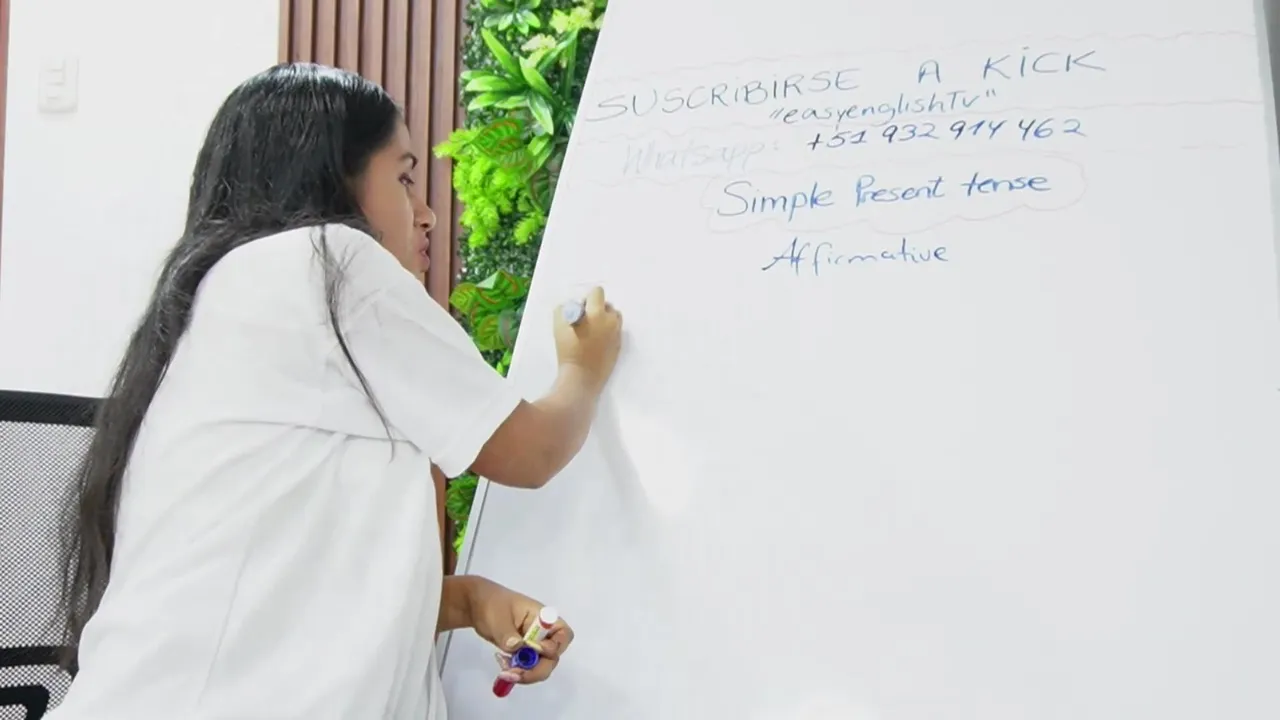 SUSCRIBIRSE A KICK
"easyenglishTv"
Whatsapp: +51 932 914 462
Simple Present tense
Affirmative